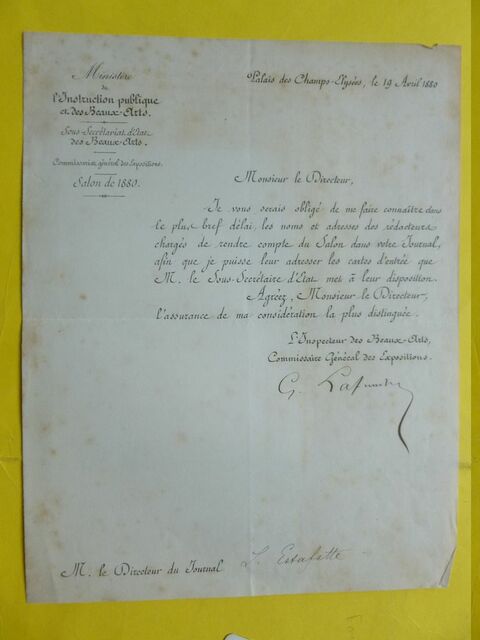 Ministère
de
l'Instruction publique
et des Beaux-Arts.
Sous-Secrétariat d'Etat
des Beaux-Arts.
Commissariat général des Expositions.
Salon de 1880.
Palais des Champs-Elysées, le 19 Avril 1880
Monsieur le Directeur,
Je vous serais obligé de me faire connaître dans
le plus bref délai, les noms et adresses des rédacteurs
chargés de rendre compte du Salon dans votre Journal,
afin que je puisse leur adresser les cartes d'entrée que
M. le Sous-Secrétaire d'Etat met à leur disposition.
Agréez, Monsieur le Directeur,
l'assurance de ma considération la plus distinguée.
L'Inspecteur des Beaux-Arts,
Commissaire Général des Expositions.
G.
M. le Directeur du Journal L'Estafette